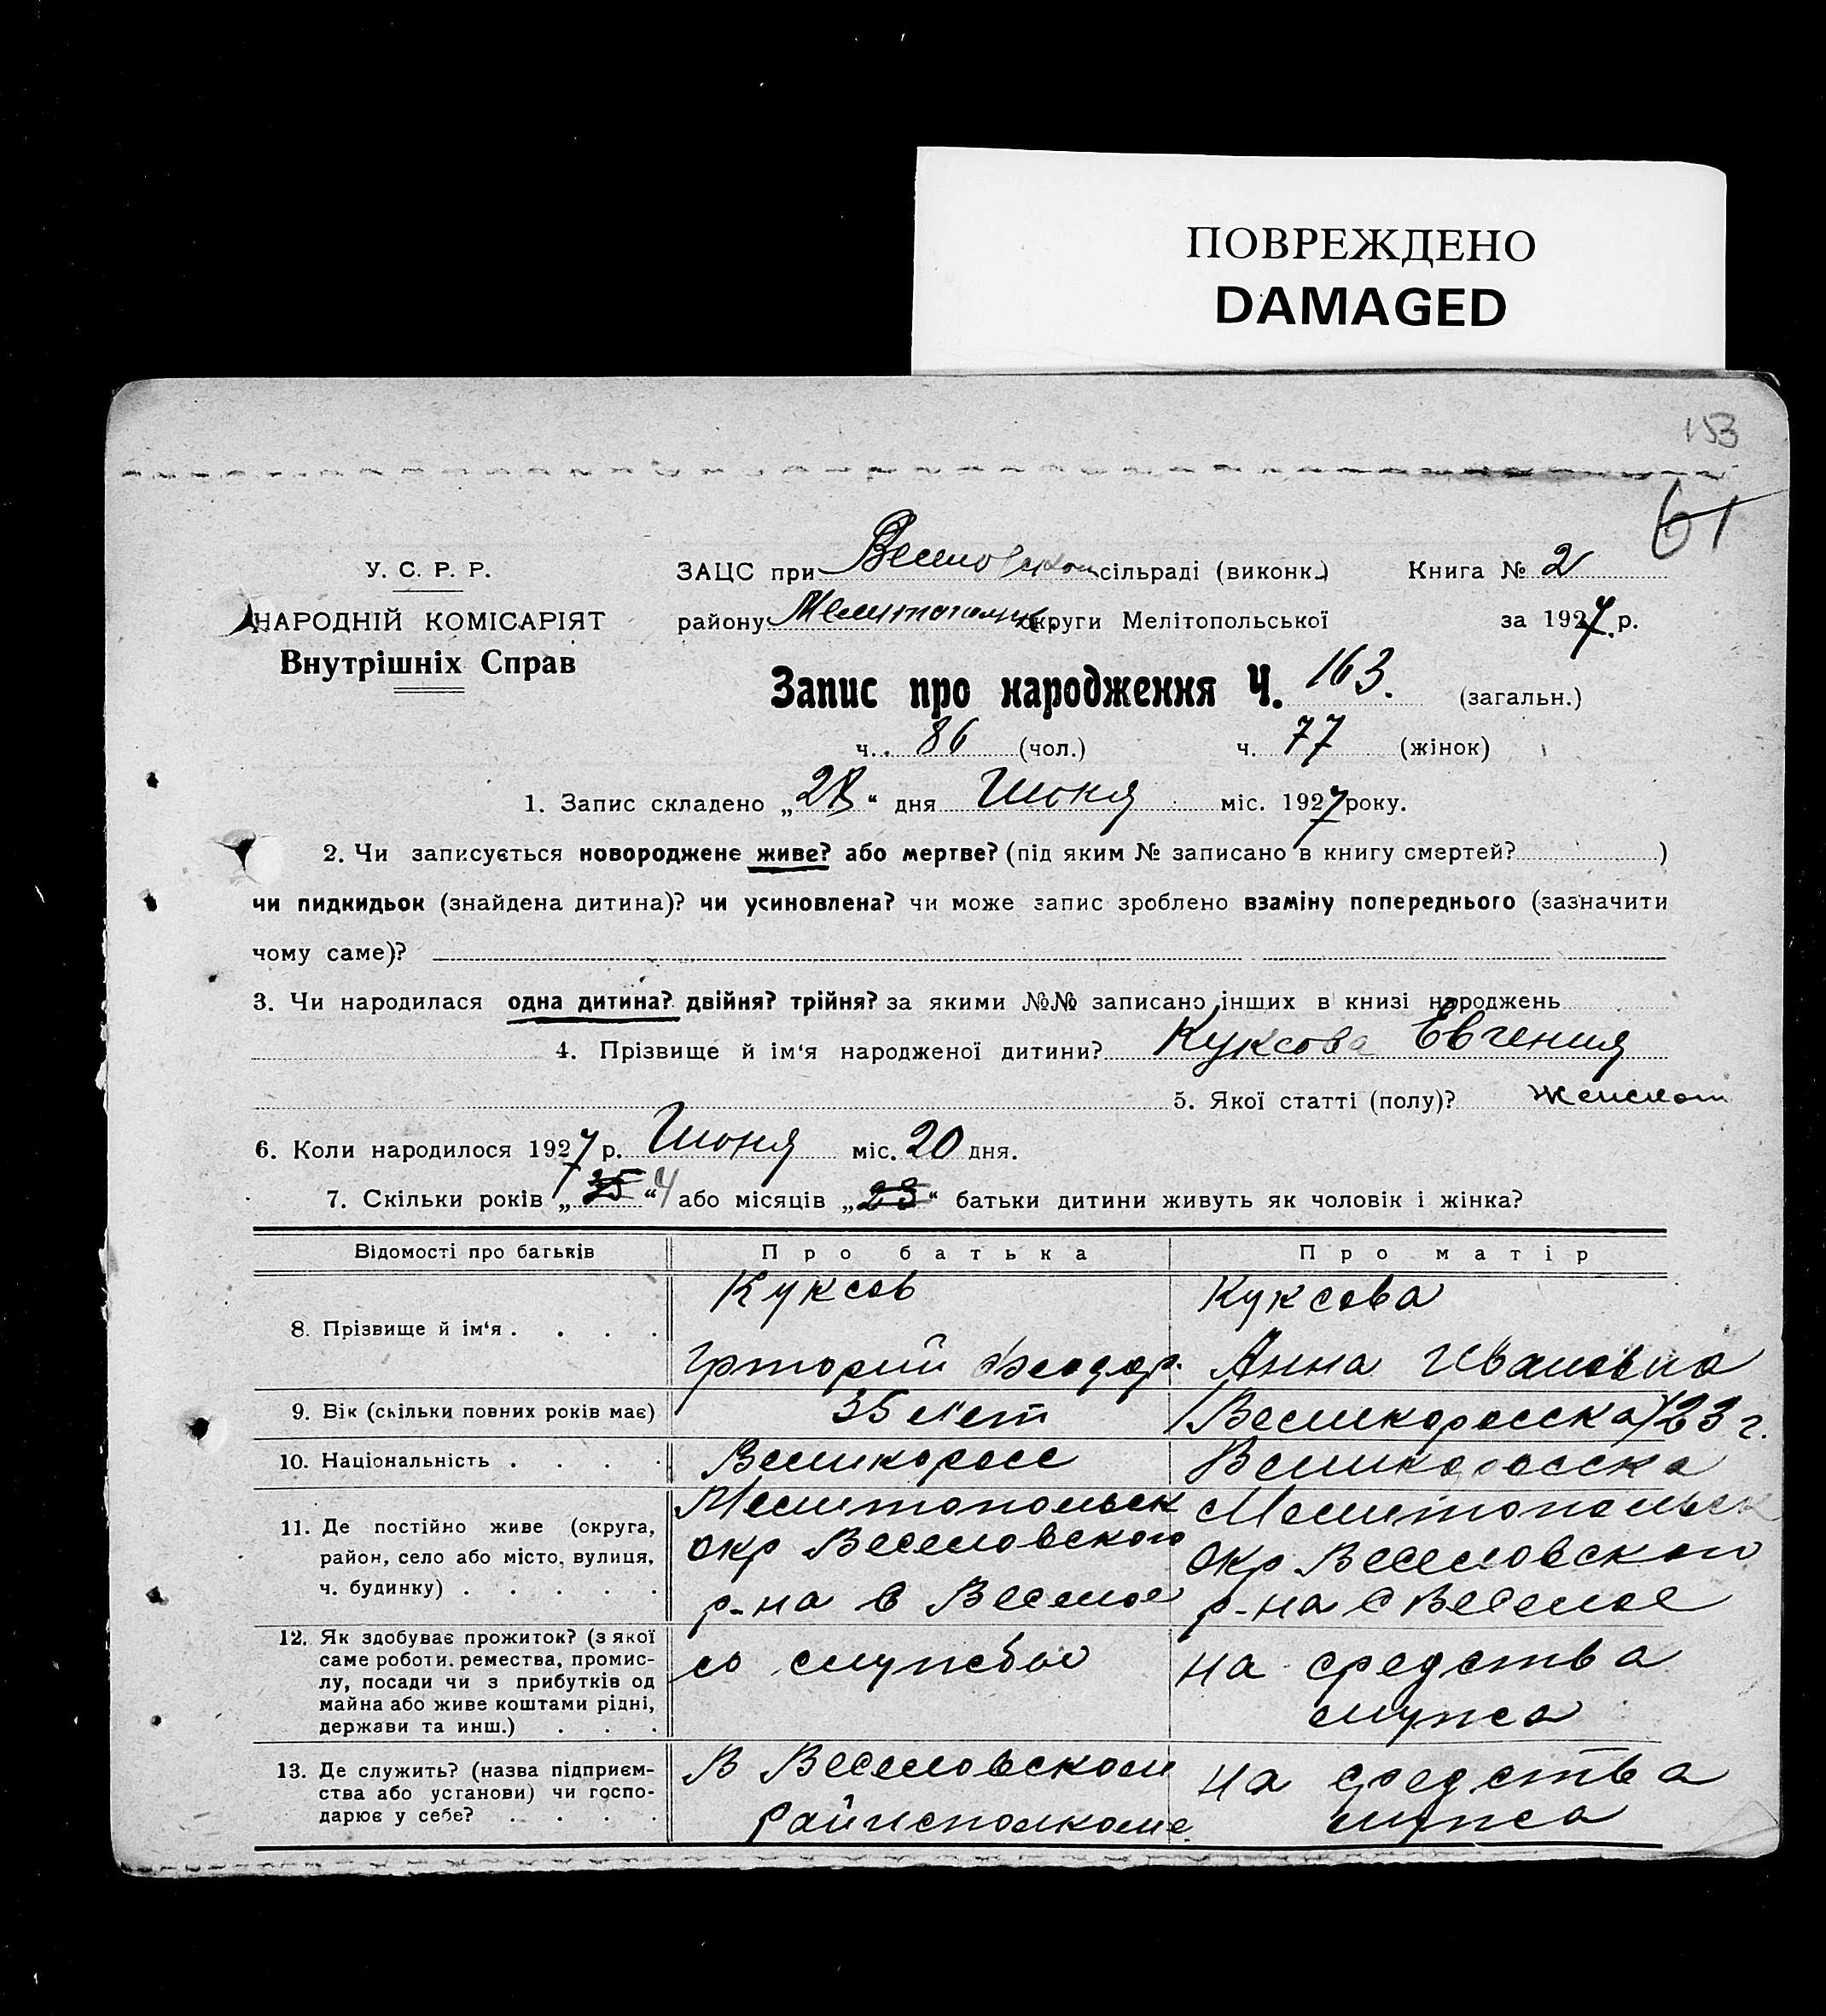 ПОВРЕЖДЕНО
DAMAGED
153
61
У. С. Р. Р.
НАРОДНІЙ КОМІСАРІЯТ
Внутрішніх Справ
ЗАЦС при сільраді (виконк.) Книга № 2
району округи Мелітопольської за 1927 р.
Запис про народження Ч. 163. (загальн.)
ч. 86 (чол.) ч. 77 (жінок)
1. Запис складено „28“ дня Июня міс. 1927 року.
2. Чи записується новороджене живе? або мертве? (під яким № записано в книгу смертей? )
чи пидкидьок (знайдена дитина)? чи усиновлена? чи може запис зроблено взаміну попереднього (зазначити
чому саме)?
3. Чи народилася одна дитина? двійня? трійня? за якими №№ записано інших в книзі народжень
4. Прізвище й ім‘я народженої дитини? Куксова Евгения
5. Якої статті (полу)? женском
6. Коли народилося 1927 р. Июня міс. 20 дня.
7. Скільки років „35“ 4 або місяців „23“ батьки дитини живуть як чоловік і жінка?
Відомості про батьків Про батька Про матір
8. Прізвище й ім‘я . . . .
Куксов
Григорий Феодор.
Куксова
Анна Ивановна
9. Вік (скільки повних років має) 35 лет (Великоросска) 23 г.
10. Національність . . . . Великоросс Великоросска
11. Де постійно живе (округа,
район, село або місто, вулиця,
ч. будинку) . . . . .
Мелитопольск
окр Веселовского
р-на с Веселое
Мелитопольск
окр Веселовского
р-на с Веселое
12. Як здобуває прожиток? (з якої
саме роботи, ремества, промис-
лу, посади чи з прибутків од
майна або живе коштами рідні,
держави та инш.) . . .
службы
на средства
мужа
13. Де служить? (назва підприєм-
ства або установи) чи госпо-
дарює у себе? . . . .
В Веселовском
Райисполкоме
на средства
мужа